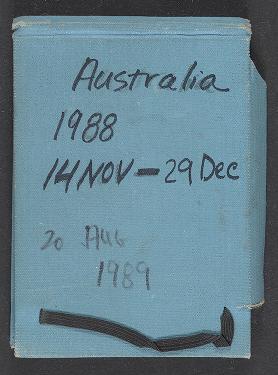 Australia
1988
14 NOV - 29 Dec
20 AUG
1989